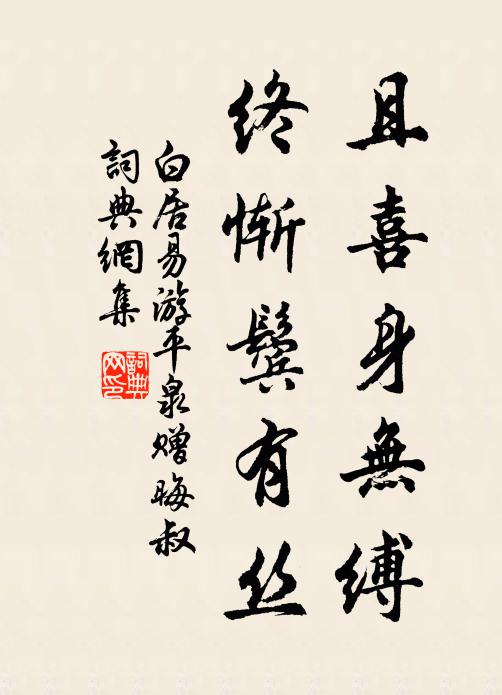 且喜身無縛
終慚鬢有丝
白居易游平泉赠晦叔
詞典網集
詞典网印